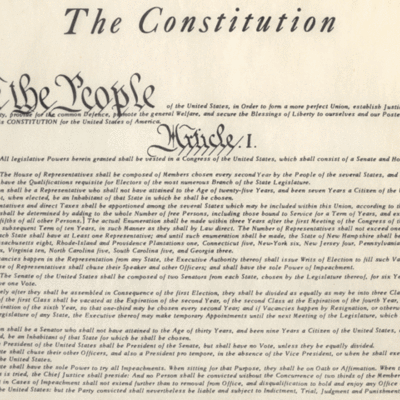 The Constitution
The People of the United States, in Order to form a more perfect Union, establish Justi
ty, provide for the common Defence, promote the general Welfare, and secure the Blessings of Liberty to ourselves and our Poste
s CONSTITUTION for the United States of America.
Article. I.
All legislative Powers herein granted shall be vested in a Congress of the United States, which shall consist of a Senate and Ho
The House of Representatives shall be composed of Members chosen every second Year by the People of the several States, and
have the Qualifications requisite for Electors of the most numerous Branch of the State Legislature.
on shall be a Representative who shall not have attained to the Age of twenty five Years, and been seven Years a Citizen of the
t, when elected, be an Inhabitant of that State in which he shall be chosen.
entatives and direct Taxes shall be apportioned among the several States which may be included within this Union, according to th
all be determined by adding to the whole Number of free Persons, including those bound to Service for a Term of Years, and ex
fifths of all other Persons.] The actual Enumeration shall be made within three Years after the first Meeting of the Congress of
subsequent Term of ten Years, in such Manner as they shall by Law direct. The Number of Representatives shall not exceed one
ch State shall have at Least one Representative; and until such enumeration shall be made, the State of New Hampshire shall be
ssachusetts eight, Rhode-Island and Providence Plantations one, Connecticut five, New-York six, New Jersey four, Pennsylvania
x, Virginia ten, North Carolina five, South Carolina five, and Georgia three.
ancies happen in the Representation from any State, the Executive Authority thereof shall issue Writs of Election to fill such Va
se of Representatives shall chuse their Speaker and other Officers; and shall have the sole Power of Impeachment.
The Senate of the United States shall be composed of two Senators from each State, chosen by the Legislature thereof, for six Ye
ne one Vote.
ely after they shall be assembled in Consequence of the first Election, they shall be divided as equally as may be into three Clas
of the first Class shall be vacated at the Expiration of the second Year, of the second Class at the Expiration of the fourth Year,
ration of the sixth Year, so that one-third may be chosen every second Year; and if Vacancies happen by Resignation, or otherw
egislature of any State, the Executive thereof may make temporary Appointments until the next Meeting of the Legislature, which
on shall be a Senator who shall not have attained to the Age of thirty Years, and been nine Years a Citizen of the United States,
ed, be an Inhabitant of that State for which he shall be chosen.
President of the United States shall be President of the Senate, but shall have no Vote, unless they be equally divided.
te shall chuse their other Officers, and also a President pro tempore, in the absence of the Vice President, or when he shall exe
the United States.
te shall have the sole Power to try all Impeachments. When sitting for that Purpose, they shall be on Oath or Affirmation. When t
s tried, the Chief Justice shall preside: And no Person shall be convicted without the Concurrence of two thirds of the Member
t in Cases of Impeachment shall not extend further than to removal from Office, and disqualification to hold and enjoy any Office
e United States: but the Party convicted shall nevertheless be liable and subject to Indictment, Trial, Judgment and Punishment